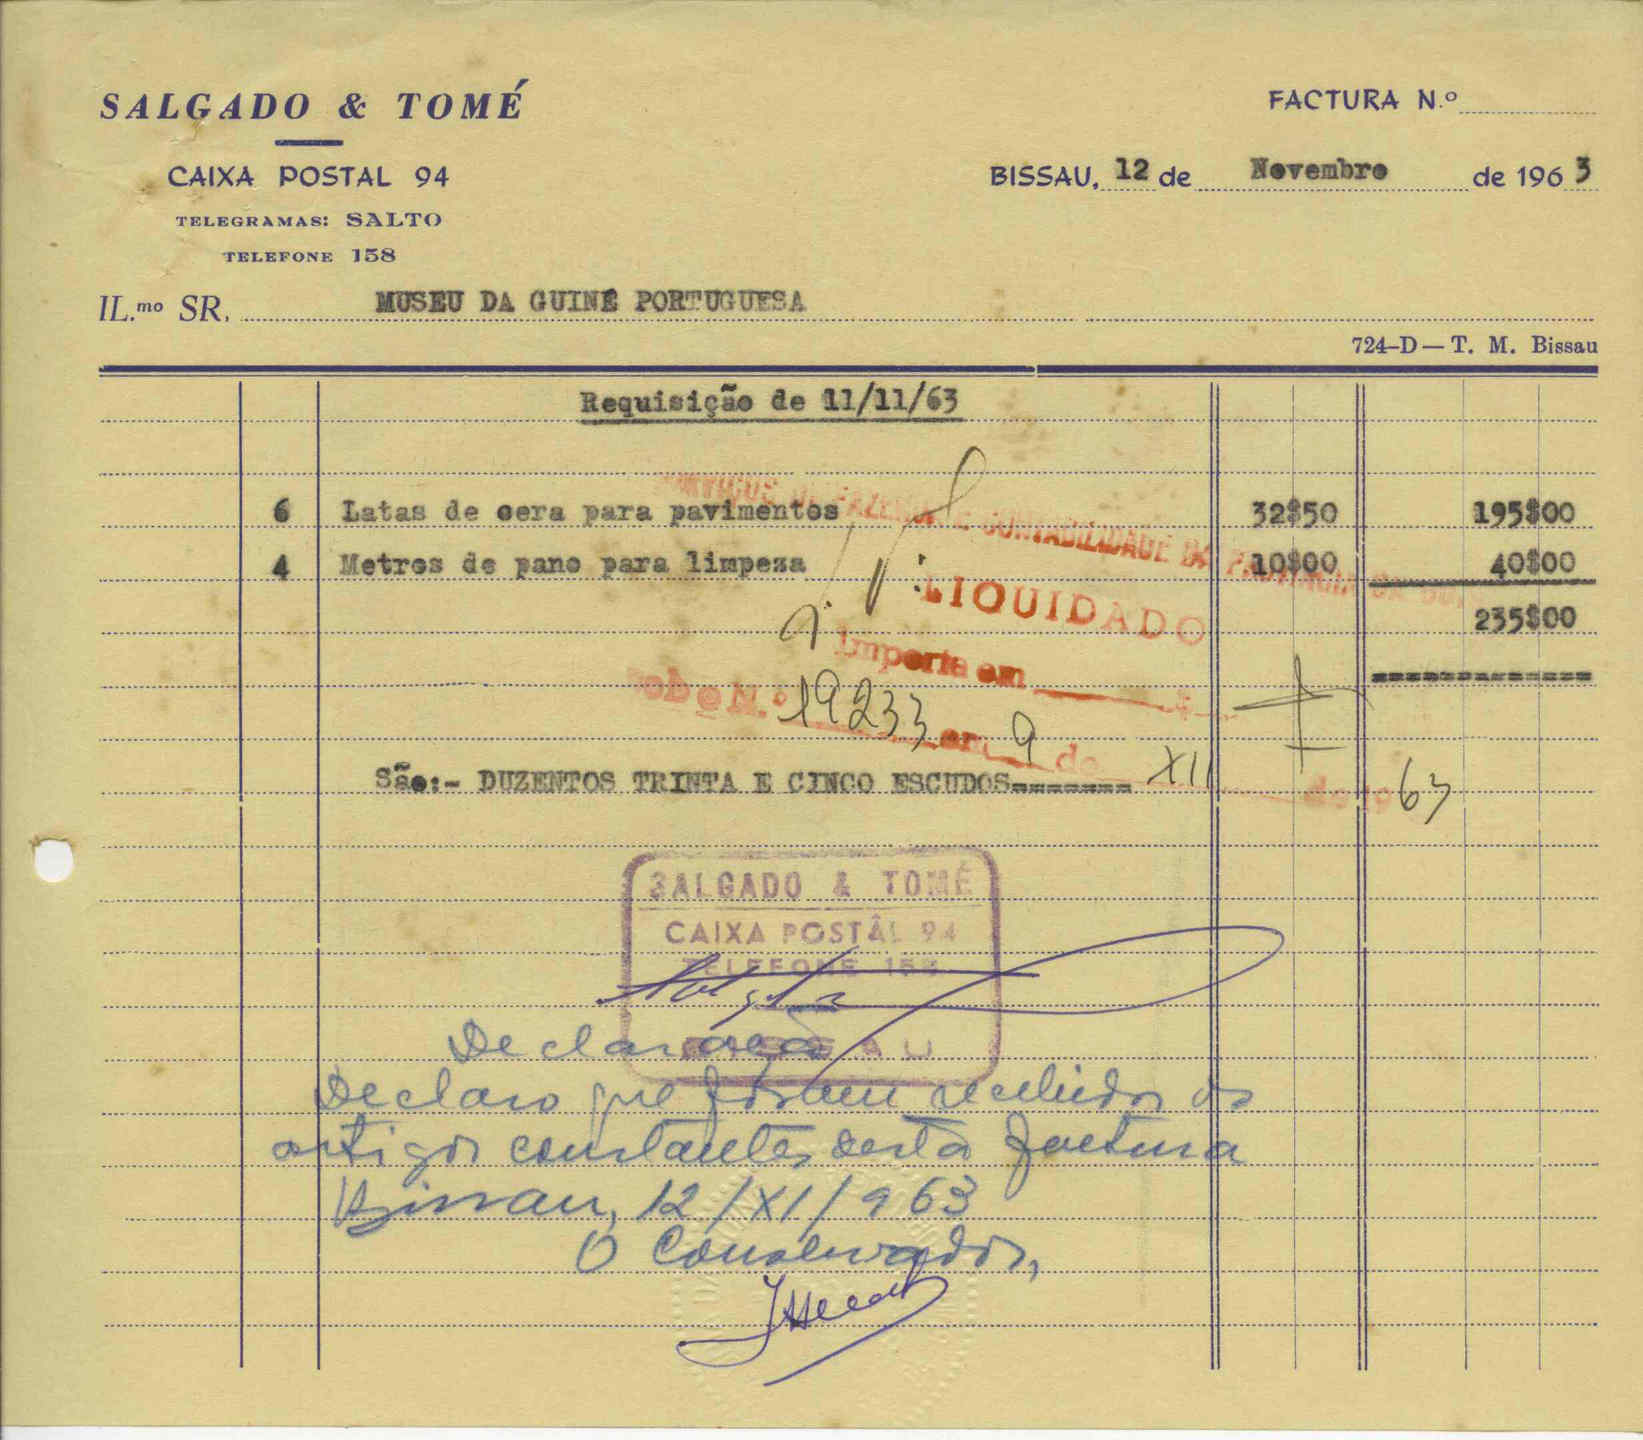 SALGADO & TOMÉ
CAIXA POSTAL 94
TELEGRAMAS: SALTO
TELEFONE 158
FACTURA N.º
BISSAU, 12 de Novembro de 1963
IL.mo SR. MUSEU DA GUINÉ PORTUGUESA
724-D — T. M. Bissau
Requisição de 11/11/63
6 Latas de cera para pavimentos 32$50 195$00
4 Metros de pano para limpeza 10$00 40$00
235$00
SERVIÇOS DE FAZENDA E CONTABILIDADE DA PROVÍNCIA DA
LIQUIDADO
Importa em
N.º 19233 em 9 de XII de 1963
São:- DUZENTOS TRINTA E CINCO ESCUDOS-------
SALGADO & TOMÉ
CAIXA POSTAL 94
TELEFONE 158
BISSAU
Declaração
Declaro que foram recebidos os
artigos constantes desta factura
Bissau, 12/XI/963
O Conservador,